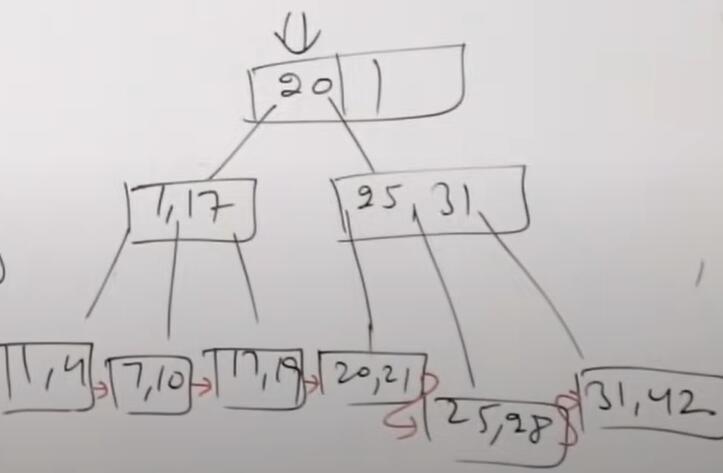 20
7,17
25,31
1,4
7,10
17,19
20,21
25,28
31,42